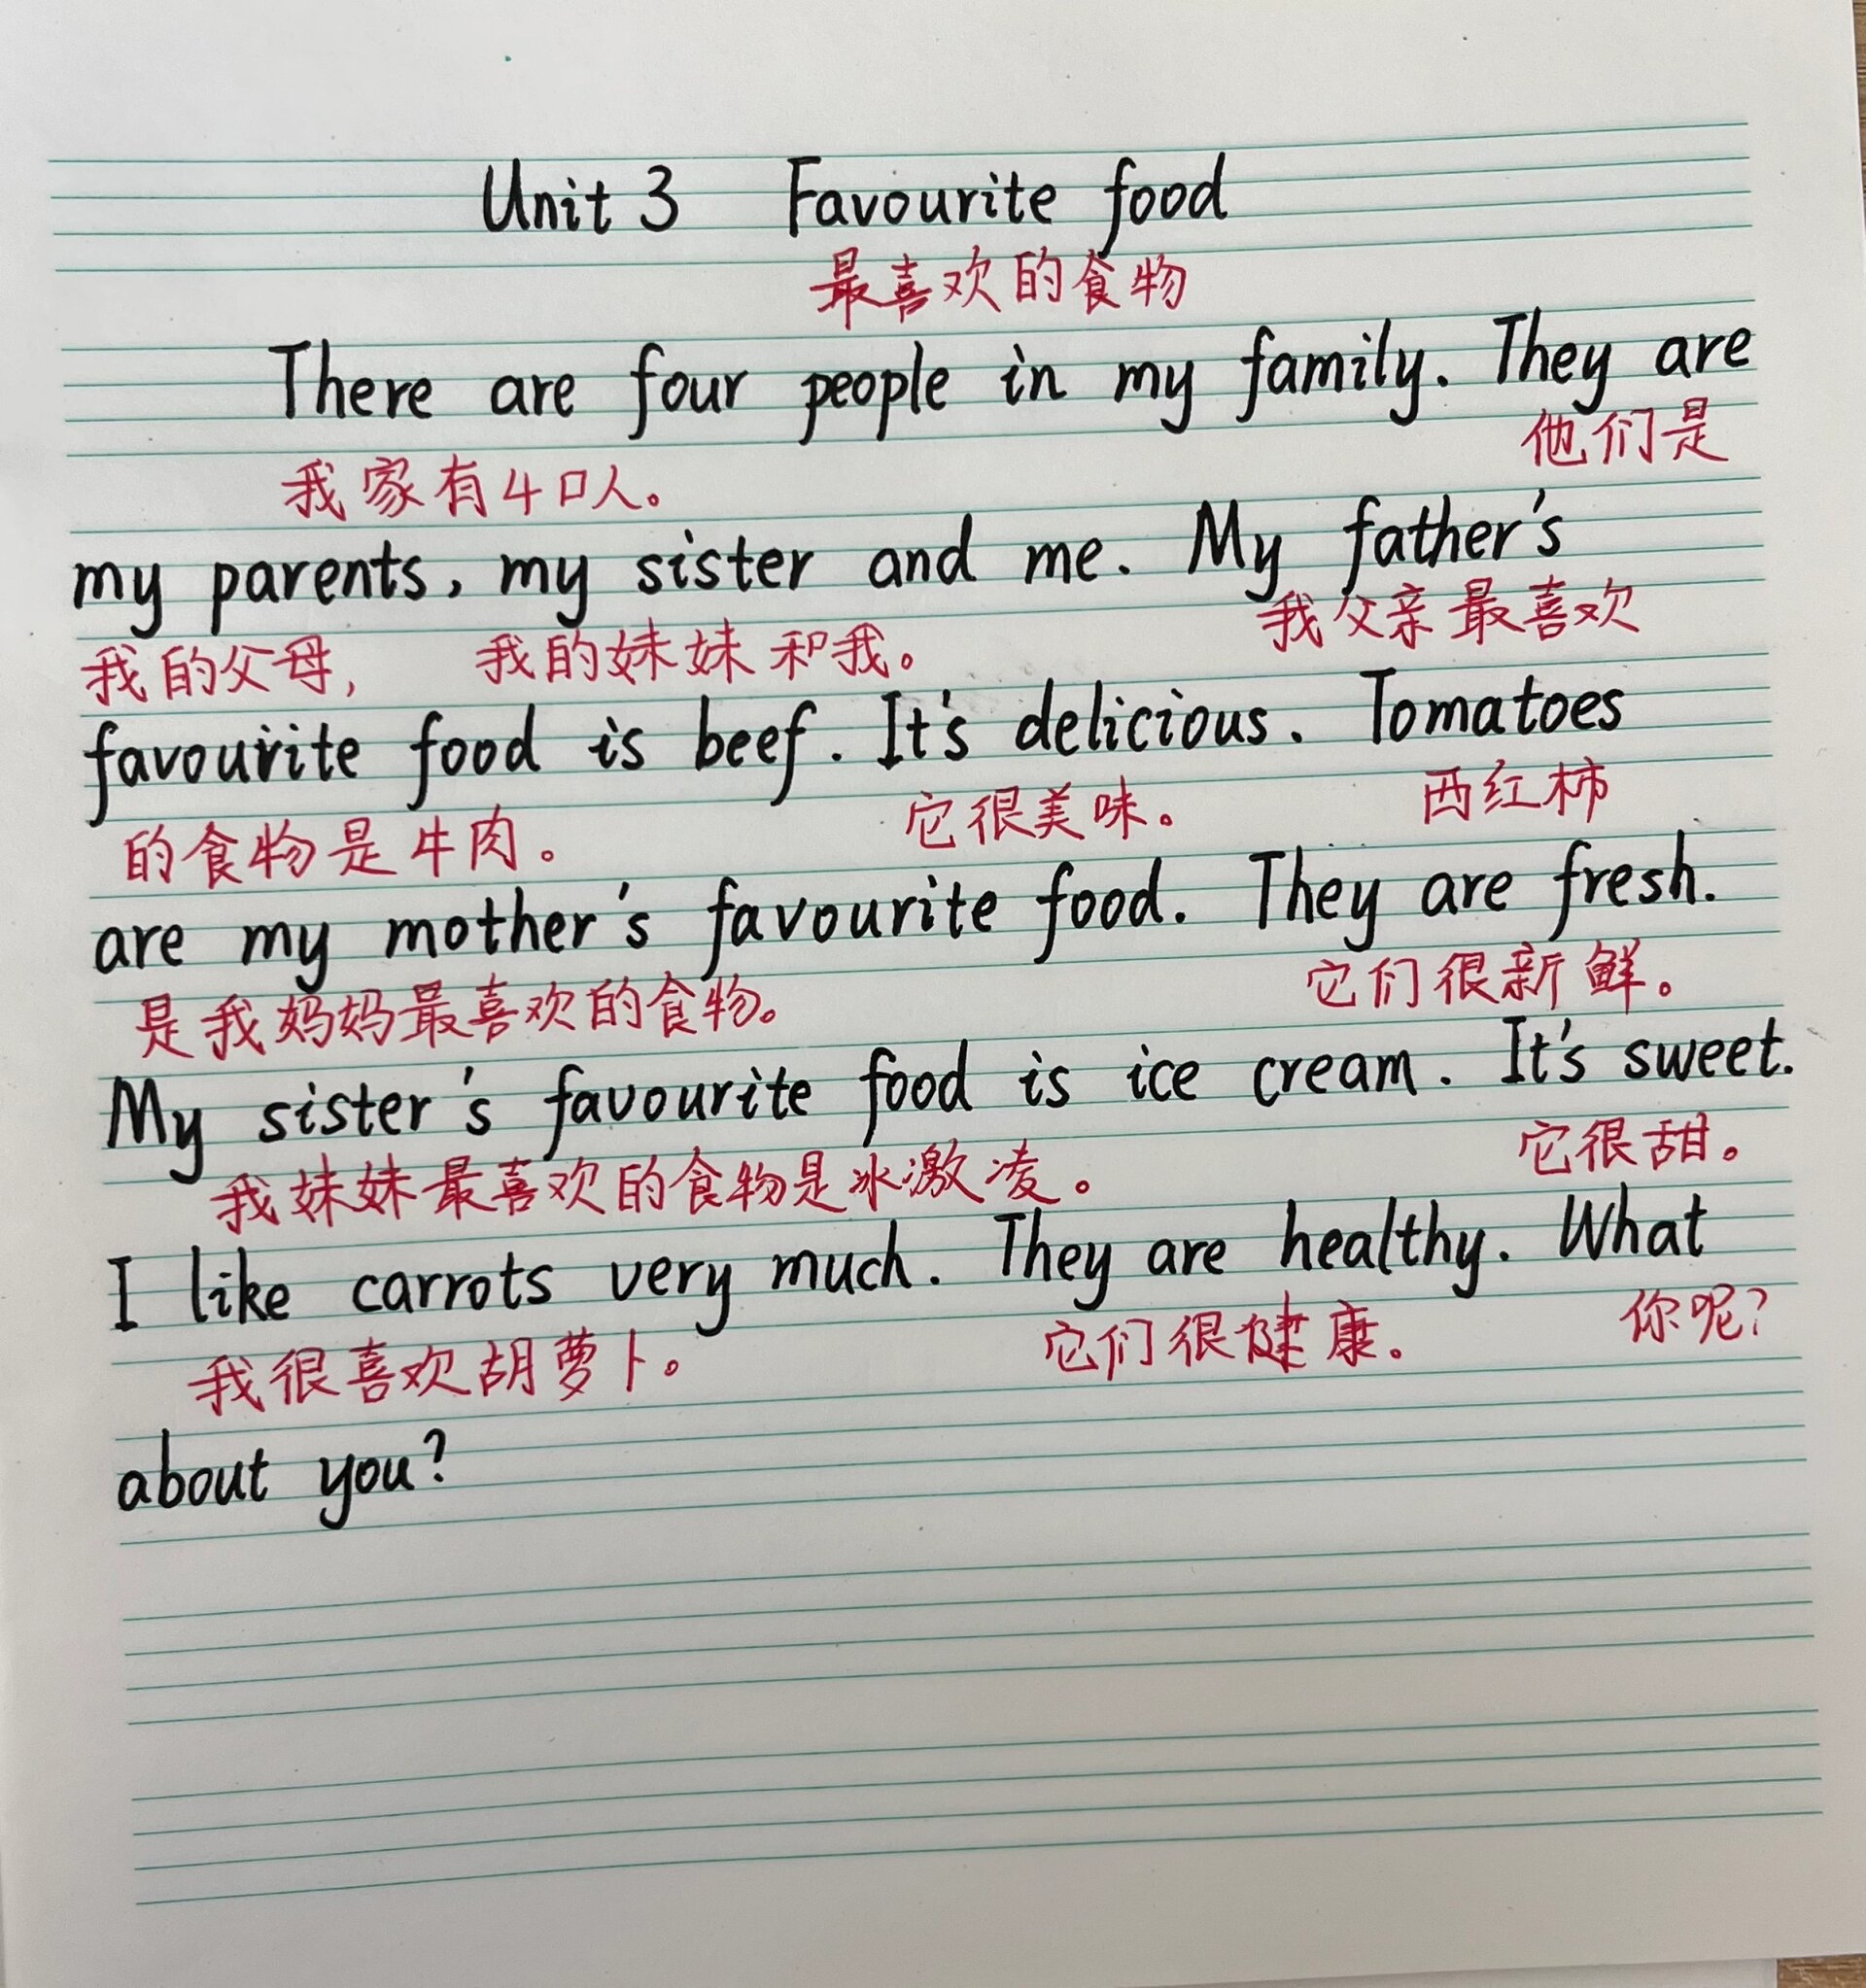 Unit 3 Favourite food
最喜欢的食物
There are four people in my family. They are
我家有4口人。 他们是
my parents, my sister and me. My father's
我的父母, 我的妹妹和我。 我父亲最喜欢
favourite food is beef. It's delicious. Tomatoes
的食物是牛肉。 它很美味。 西红柿
are my mother's favourite food. They are fresh.
是我妈妈最喜欢的食物。 它们很新鲜。
My sister's favourite food is ice cream. It's sweet.
我妹妹最喜欢的食物是冰激凌。 它很甜。
I like carrots very much. They are healthy. What
我很喜欢胡萝卜。 它们很健康。 你呢?
about you?